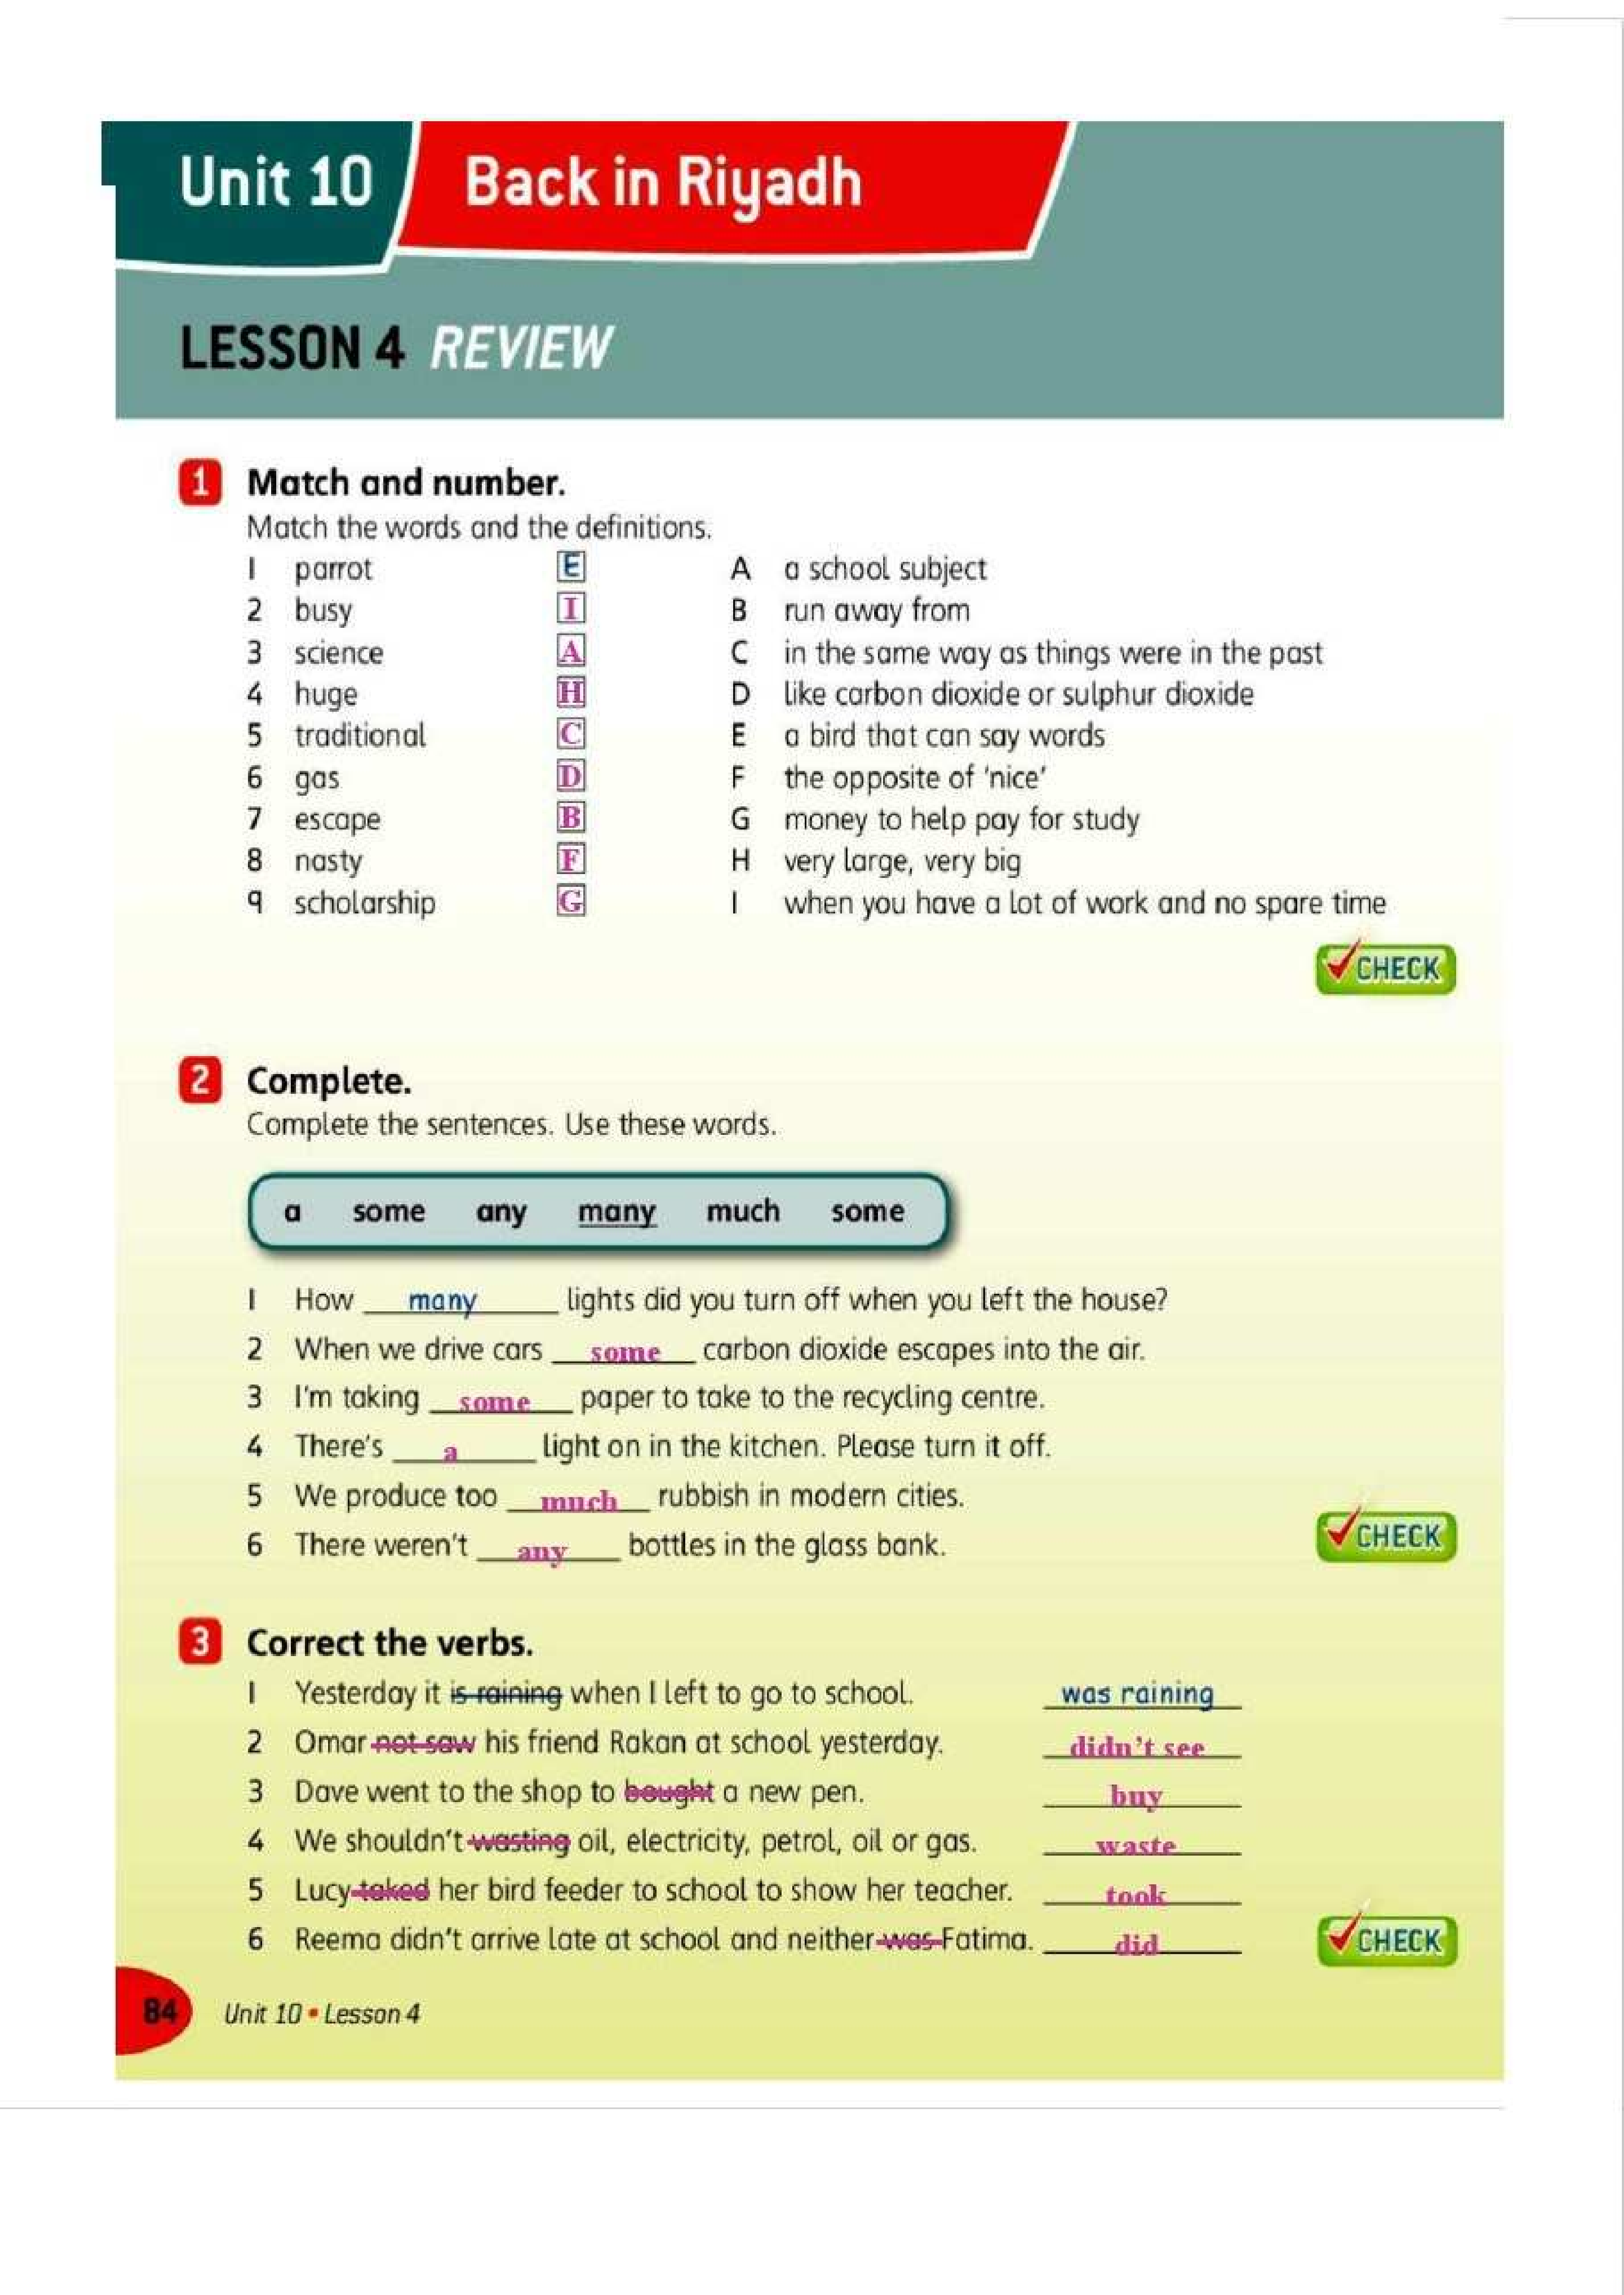 Unit 10 Back in Riyadh
LESSON 4 REVIEW
1 Match and number.
Match the words and the definitions.
1 parrot E A a school subject
2 busy I B run away from
3 science A C in the same way as things were in the past
4 huge H D like carbon dioxide or sulphur dioxide
5 traditional C E a bird that can say words
6 gas D F the opposite of 'nice'
7 escape B G money to help pay for study
8 nasty F H very large, very big
9 scholarship G I when you have a lot of work and no spare time
CHECK
2 Complete.
Complete the sentences. Use these words.
a some any many much some
1 How many lights did you turn off when you left the house?
2 When we drive cars some carbon dioxide escapes into the air.
3 I'm taking some paper to take to the recycling centre.
4 There's a light on in the kitchen. Please turn it off.
5 We produce too much rubbish in modern cities.
6 There weren't any bottles in the glass bank.
CHECK
3 Correct the verbs.
1 Yesterday it is raining when I left to go to school. was raining
2 Omar not saw his friend Rakan at school yesterday. didn't see
3 Dave went to the shop to bought a new pen. buy
4 We shouldn't wasting oil, electricity, petrol, oil or gas. waste
5 Lucy taked her bird feeder to school to show her teacher. took
6 Reema didn't arrive late at school and neither was Fatima. did
CHECK
84 Unit 10 • Lesson 4